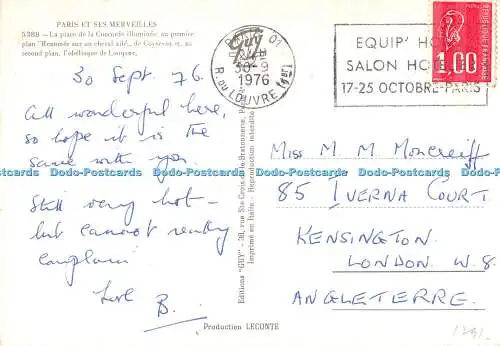 PARIS ET SES MERVEILLES
5388 - La place de la Concorde illuminée, au premier
plan "Renommée sur un cheval ailé", de Coysevox et, au
second plan, l'obélisque de Louqsor.
30 Sept 76.
All wonderful here,
so hope it is the
same with you.
Still very hot -
but cannot really
complain
Love
B.
Production LECONTE
Editions "GUY" - 38, rue Ste-Croix-de-la-Bretonnerie,
Imprimé en Italie - Reproduction interdite
Guy
01
30-9
1976
R. DU LOUVRE
EQUIP' HO
SALON HOTE
17-25 OCTOBRE-PARIS
1,00
FRANCE
Miss M M Moncreiff
85 IVERNA COURT
KENSINGTON.
LONDON W.8.
ANGLETERRE.
Dodo-Postcards Dodo-Postcards Dodo-Postcards Dodo-Postcards